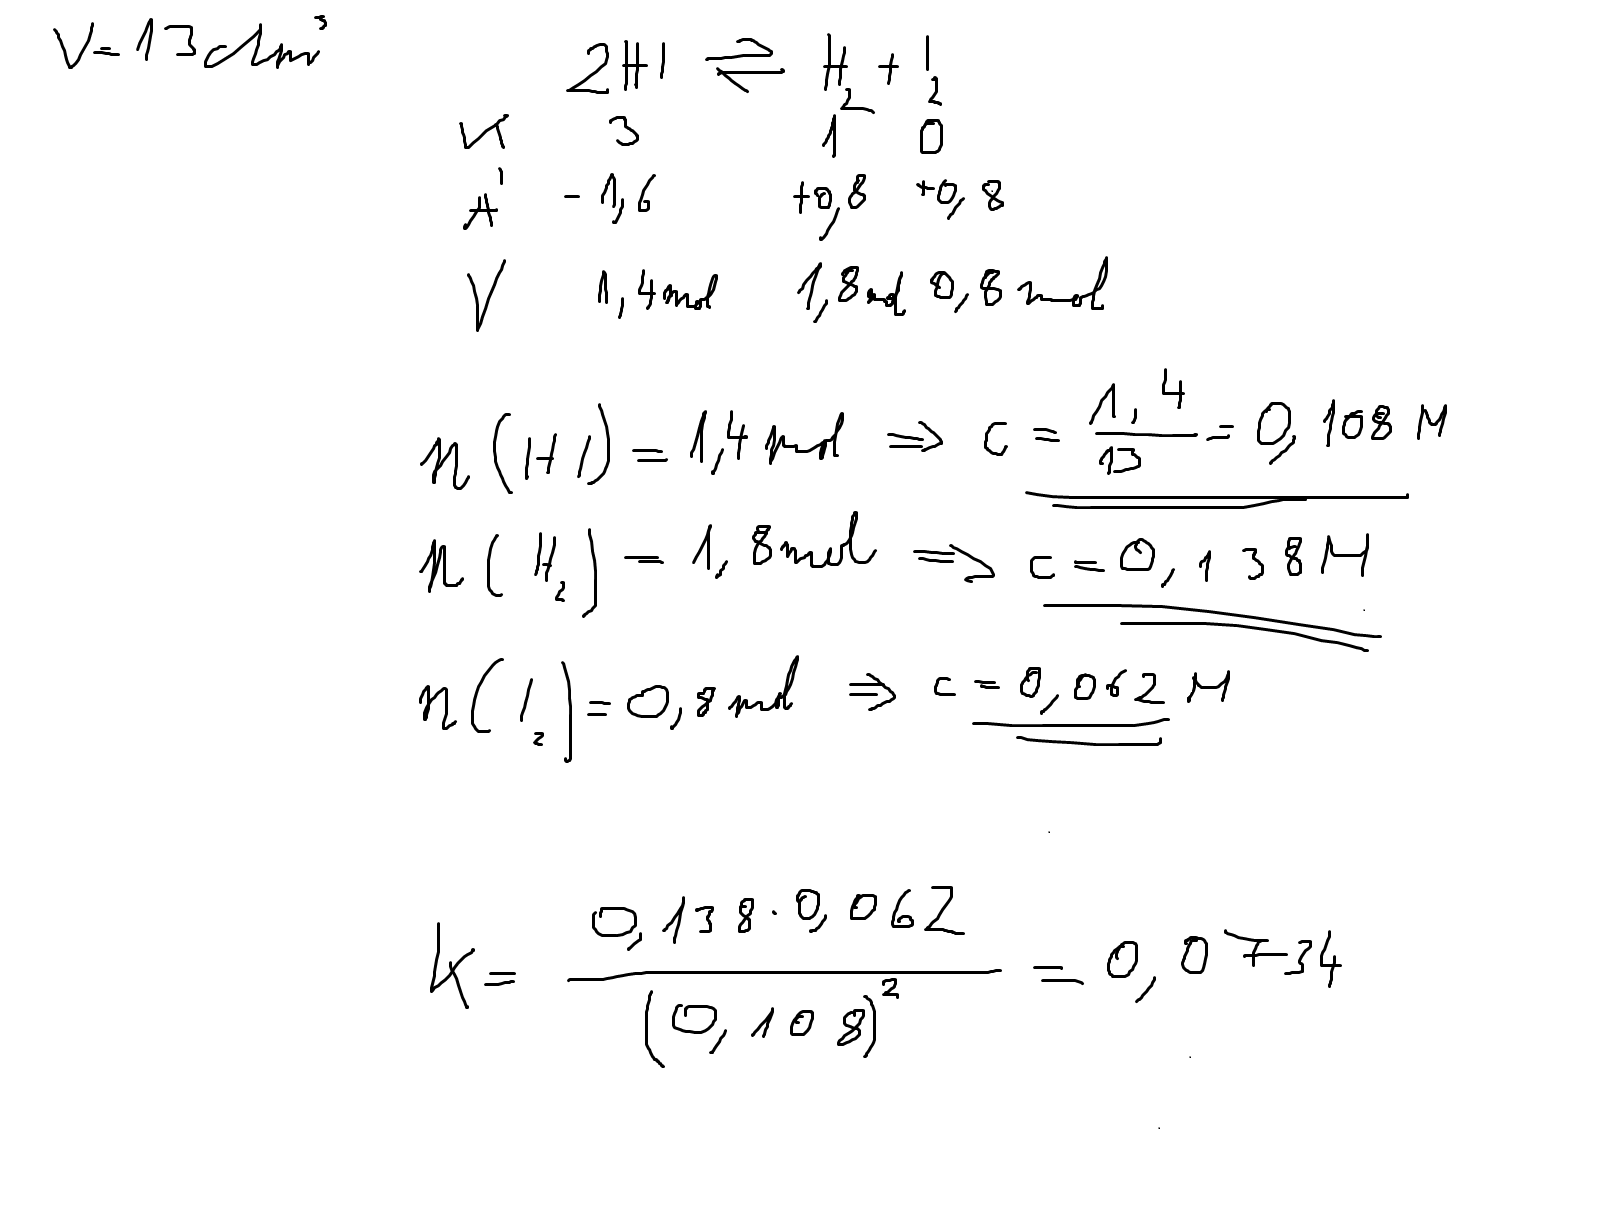 V=13dm³
2HI ⇌ H₂ + I₂
K 3 1 0
Á -1,6 +0,8 +0,8
V 1,4mol 1,8mol 0,8mol
n(HI) = 1,4mol ⇒ c = 1,4/13 = 0,108 M
n(H₂) = 1,8mol ⇒ c = 0,138M
n(I₂) = 0,8mol ⇒ c = 0,062 M
K = 0,138·0,062/(0,108)² = 0,0734